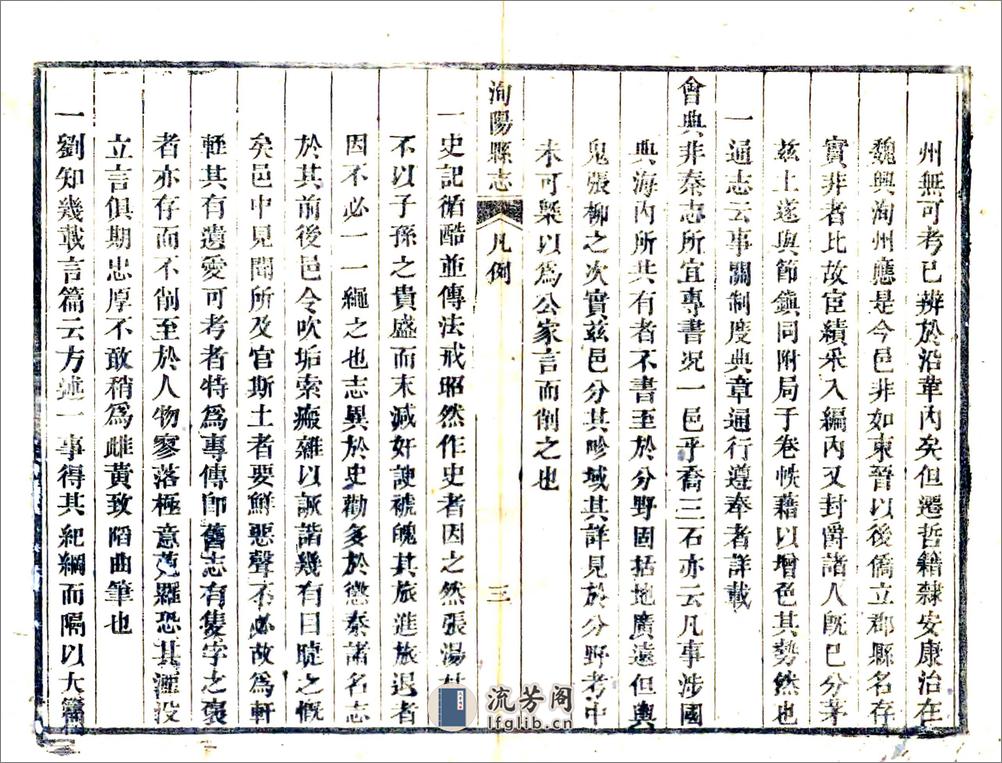 州無可考已辨於沿革內矣但遷哲籍隸安康治在
魏興洵州應是今邑非如東晉以後僑立郡縣名存
實非者比故宦績釆入編內又封爵諸人旣已分茅
茲土遂與節鎭同附局于卷帙藉以增色其勢然也
一通志云事關制度典章通行遵奉者詳載
會典非秦志所宜專書况一邑乎喬三石亦云凡事涉國
典海內所共有者不書至於分野固括地廣遠但輿
鬼張柳之次實茲邑分其畛域其詳見於分野考中
未可槩以爲公家言而削之也
洵陽縣志
凡例
三
一史記循酷並傳法戒昭然作史者因之然張湯杜
不以子孫之貴盛而末減奸諛褫魄其旅進旅退者
因不必一一繩之也志異於史勸多於懲秦諸名志
於其前後邑令吹垢索瘢雜以詼諧幾有曰曉之慨
矣邑中見聞所及官斯土者要鮮惡聲不必故爲軒
輊其有遺愛可考者特爲專傳卽舊志有隻字之褒
者亦存而不削至於人物寥落極意蒐羅恐其湮没
立言俱期忠厚不敢稍爲雌黄致蹈曲筆也
一劉知幾載言篇云方述一事得其紀綱而隔以大篇
流芳阁
lfglib.cn